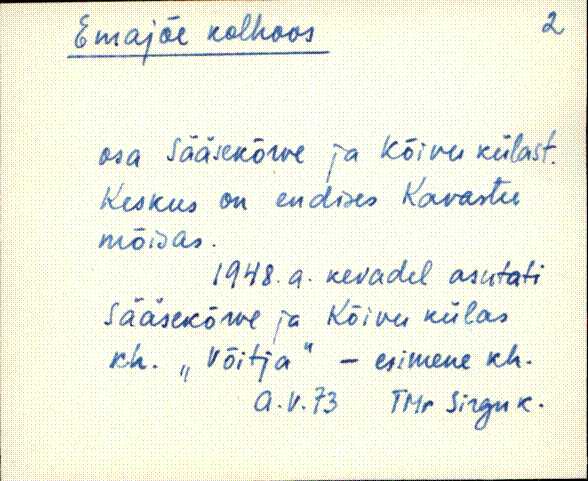 Emajõe kolhoos 2
osa Sääsekõrve ja Kõivu külast.
Keskus on endises Kavastu
mõisas.
1948. a. kevadel asutati
Sääsekõrve ja Kõivu külas
kh. „Võitja" – esimene kh.
A.V.73 TMr Sirguk.